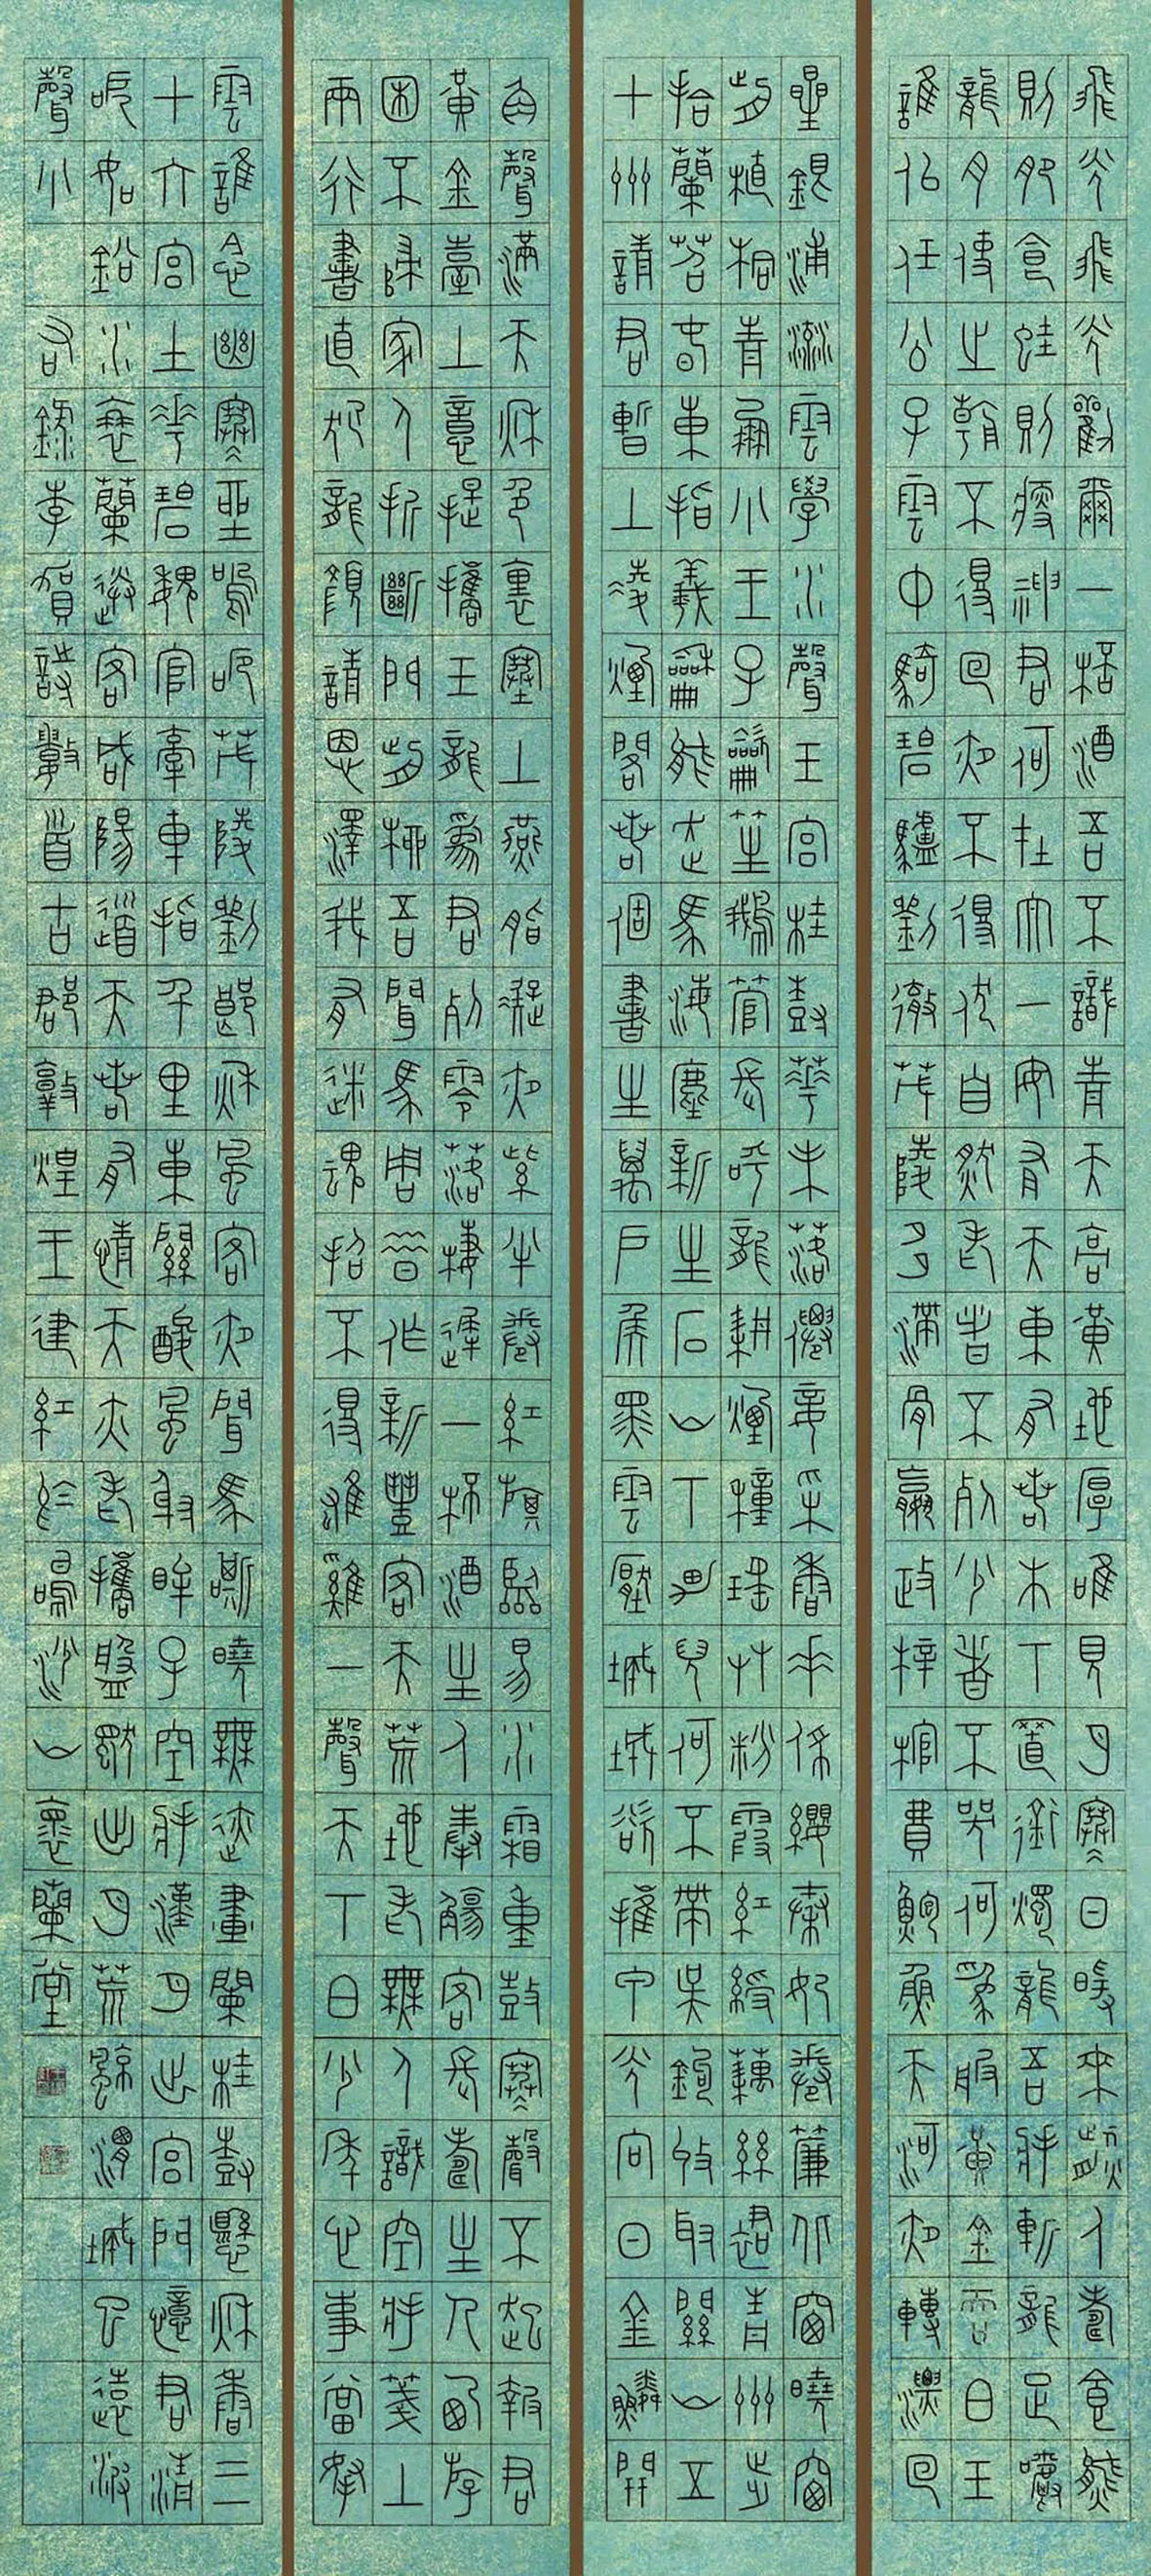 飛光飛光勸爾一桮酒吾不識青天高黃地厚唯見月寒日暖來煎人壽食熊
則肥食蛙則瘦神君何在太一安有天東有若木下置銜燭龍吾將斬龍足嚼
龍肉使之朝不得回夜不得伏自然老者不死少者不哭何為服黃金吞白玉
誰似任公子雲中騎碧驢劉徹茂陵多滯骨嬴政梓棺費鮑魚天河夜轉漂回
星銀浦流雲學水聲玉宮桂樹花未落仙妾采香垂佩纓秦妃卷簾北窗曉窗
前植桐青鳳小王子龡笙鵝管長呼龍耕煙種瑤艸粉霞紅綬藕絲裙青州步
拾蘭苕春東指羲龢能走馬海塵新生石山下男兒何不帶吳鉤收取關山五
十州請君暫上凌煙閣若個書生萬戶侯黑雲壓城城欲摧甲光向日金鱗開
角聲滿天秋色裏塞上燕脂凝夜紫半卷紅旗臨易水霜重鼓寒聲不起報君
黃金臺上意提攜玉龍為君死零落棲遲一桮酒主人奉觴客長壽主父西游
困不歸家人折斷門前柳吾聞馬周昔作新豐客天荒地老無人識空將箋上
兩行書直犯龍顏請恩澤我有迷魂招不得雄雞一聲天下白少年心事當拏
雲誰念幽寒坐嗚呃茂陵劉郎秋風客夜聞馬嘶曉無跡畫闌桂樹懸秋香三
十六宮土花碧魏官牽車指千里東關酸風射眸子空將漢月出宮門憶君清
淚如鉛水衰蘭送客咸陽道天若有情天亦老攜盤獨出月荒涼渭城已遠波
聲小
右錄李賀詩數首古郡敦煌王建紅於鳴沙山褱蘭堂